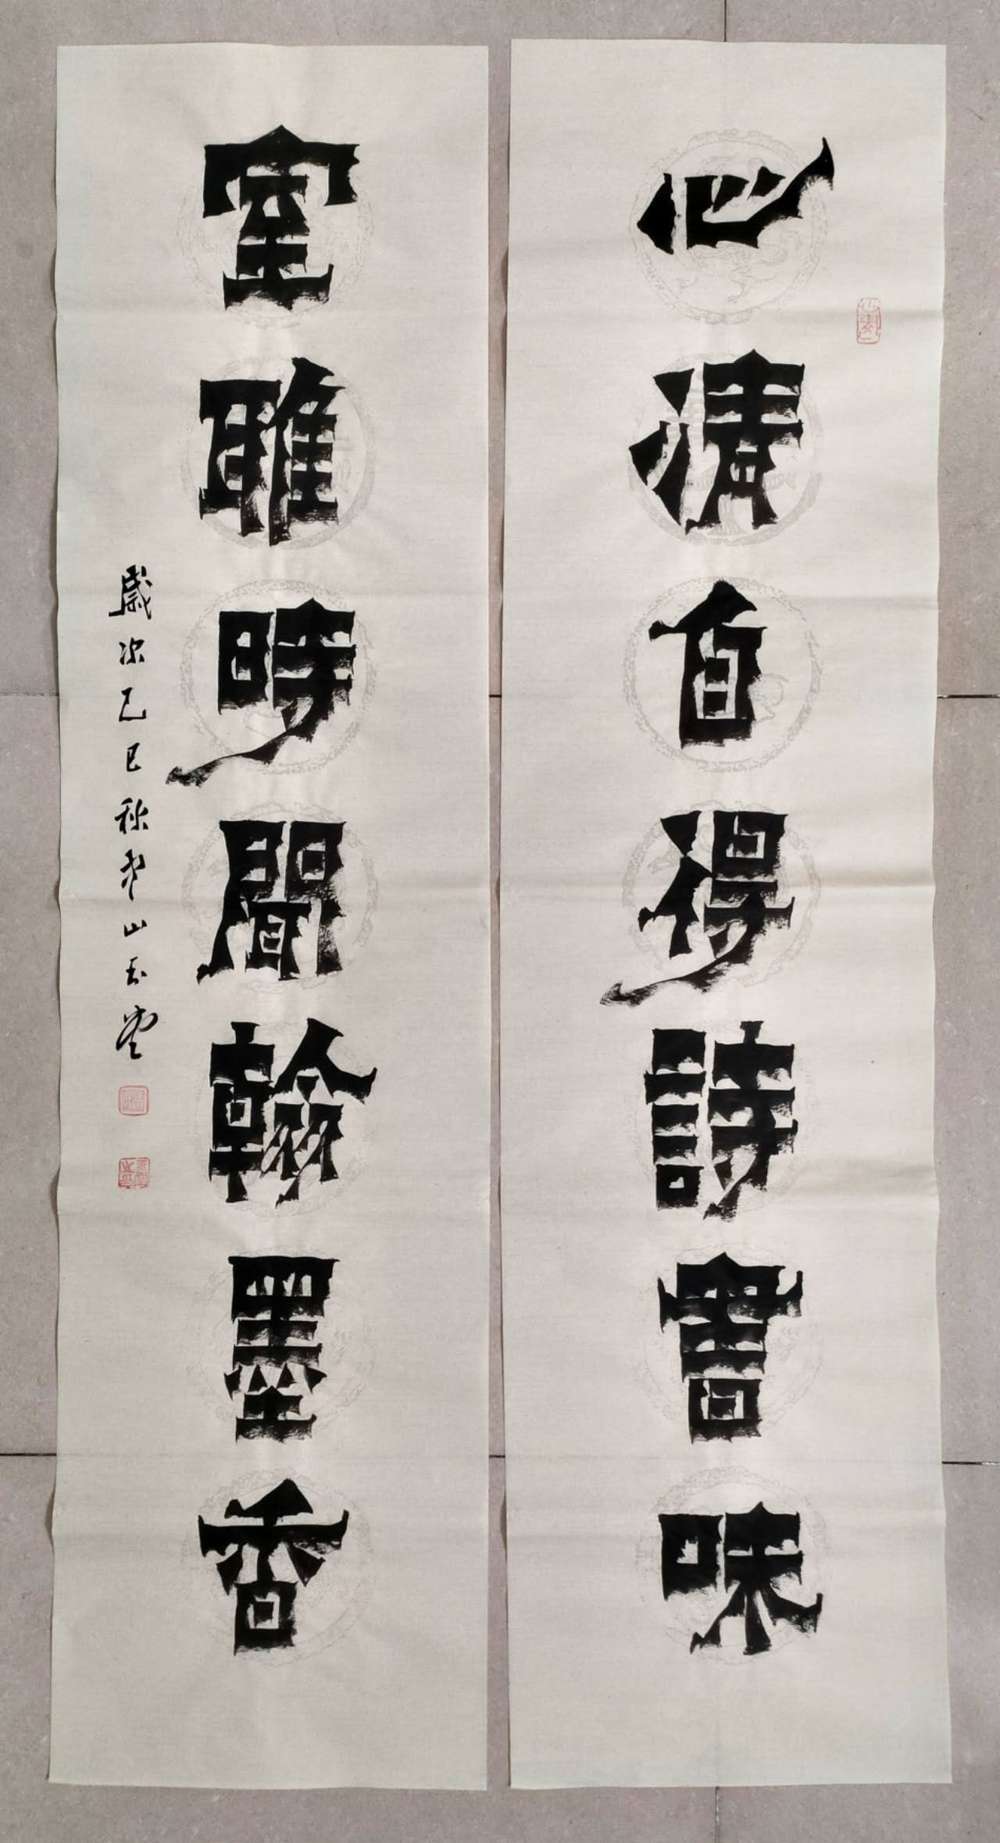 心清自得詩書味
室雅時聞翰墨香
歲次乙巳秋山玉堂